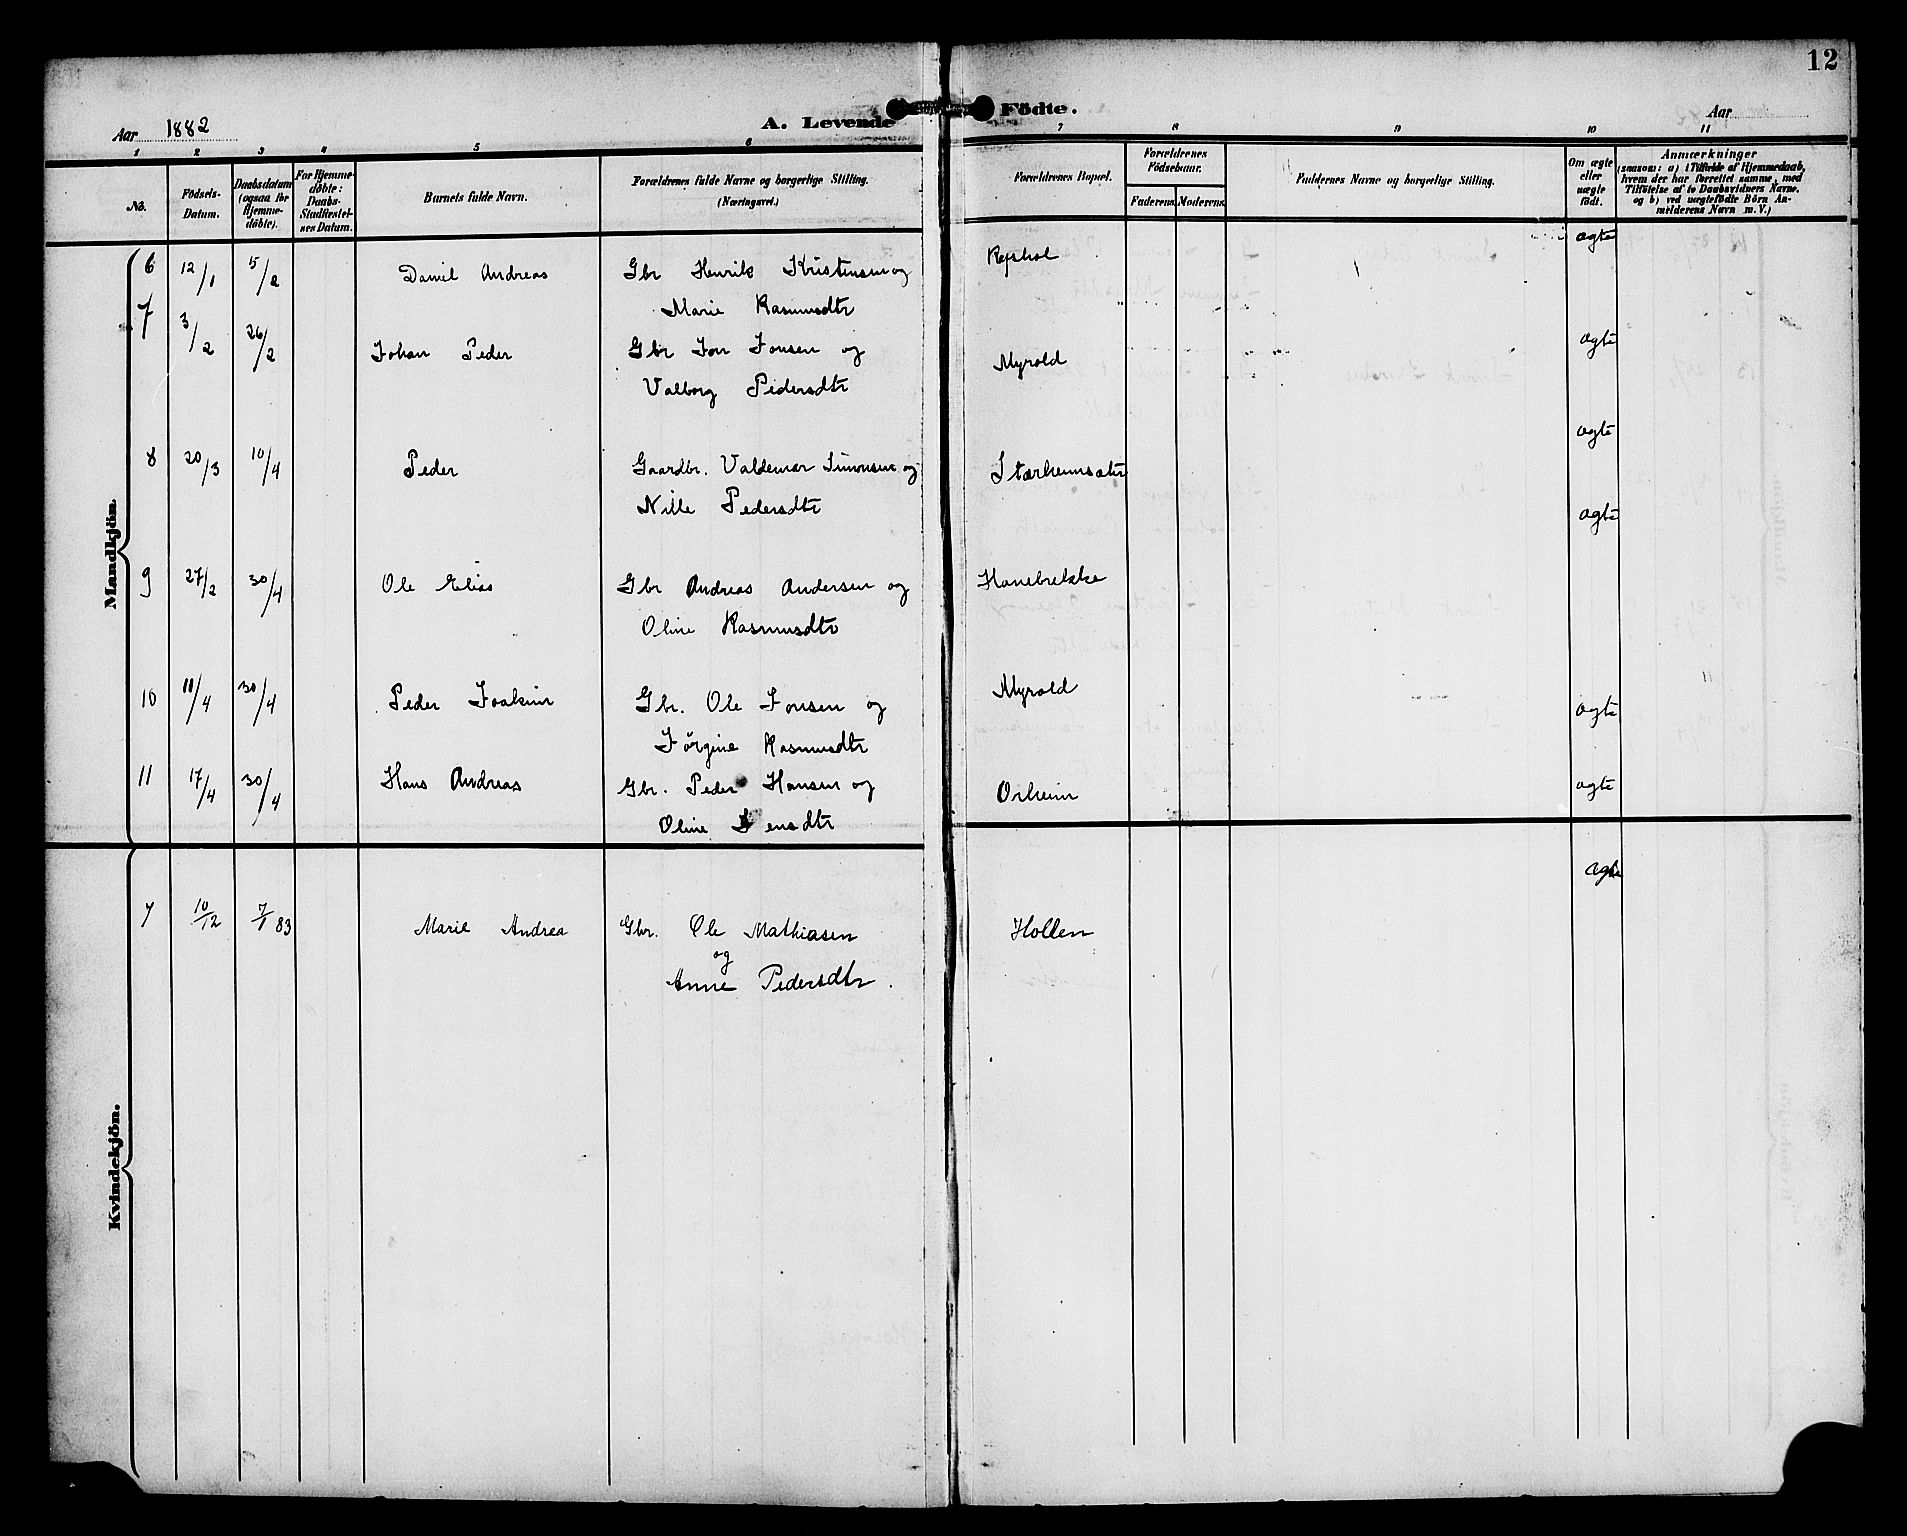 12
A. Levende Födte.
Aar 1882
Aar
1 2 3 4 5 6 7 8 9 10 11
No.
Födsels-Datum.
Daabsdatum (ogsaa for Hjemme-döbte).
For Hjemme-döbte: Daabs-Stadfæstel-ses Datum.
Barnets fulde Navn.
Forældrenes fulde Navne og borgerlige Stilling.
(Næringsvei.)
Forældrenes Bopæl.
Forældrenes Födselsaar.
Faderens. Moderens.
Faddernes Navne og borgerlige Stilling.
Om ægte eller uægte födt.
Anmærkninger
(saasom: a) i Tilfælde af Hjemmedaab,
hvem der har forrettet samme, med
Tilföielse af to Daabsvidners Navne.
og b) ved uægtefödte Börn An-
melderens Navn m. V.)
Mandkjön.
6 12/1 5/2 Daniel Andreas Gbr Henrik Kristensen og Rephol ægte
Marie Rasmusdtr
7 3/2 26/2 Johan Peder Gbr Jon Jonsen og Myrold ægte
Valborg Pedersdtr
8 20/3 10/4 Peder Gaardbr. Valdemar Simonsen og Stærheimsætr ægte
Nille Pedersdtr
9 27/2 30/4 Ole Elias Gbr Andreas Andersen og Hanebrekke ægte
Oline Rasmusdtr
10 11/4 30/4 Peder Joakim Gbr. Ole Jonsen og Myrold ægte
Jørgine Rasmusdtr
11 17/4 30/4 Hans Andreas Gbr. Peder Hansen og Orheim ægte
Oline Jensdtr
Kvindekjön.
7 10/12 7/1 83 Marie Andrea Gbr. Ole Mathiasen Hollen ægte
og
Anne Pedersdtr.